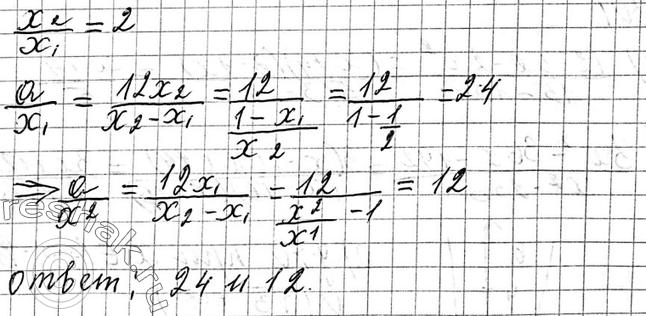 x₂/x₁ = 2
a/x₁ = 12x₂/(x₂-x₁) = 12/((1-x₁)/(x 2)) = 12/(1-1/2) = 24
⇒ a/x2 = 12x₁/(x₂-x₁) = 12/(x2/x1 -1) = 12
ответ, 24 и 12.
reshak.ru